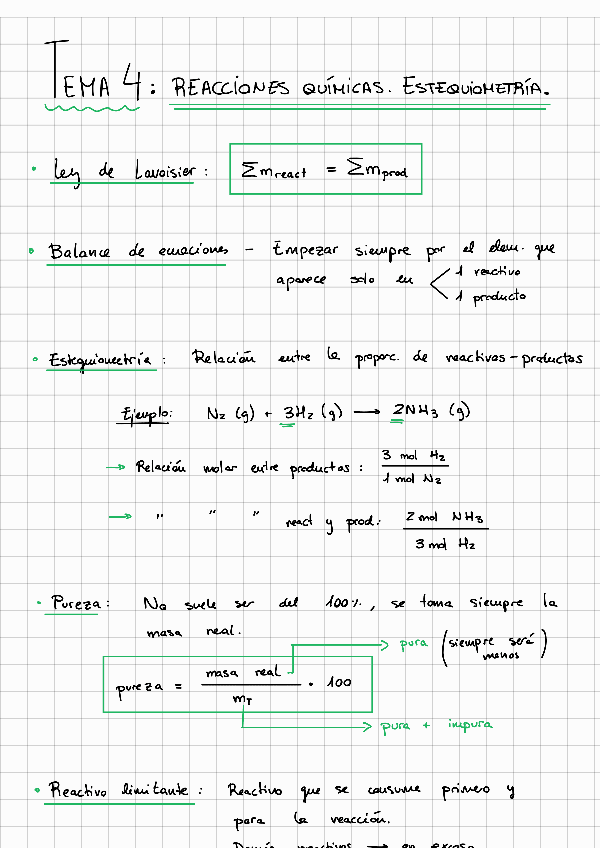 TEMA 4: REACCIONES QUÍMICAS. ESTEQUIOMETRÍA.
• Ley de Lavoisier: Σm react = Σm prod
• Balance de ecuaciones - Empezar siempre por el elem. que
aparece solo en < 1 reactivo
1 producto
• Estequiometría: Relación entre la proporc. de reactivos-productos
Ejemplo: N₂ (g) + 3H₂ (g) → 2NH₃ (g)
→ Relación molar entre productos: 3 mol H₂ / 1 mol N₂
→ " " " react y prod: 2 mol NH₃ / 3 mol H₂
• Pureza: No suele ser del 100%, se toma siempre la
masa real.
→ pura (siempre será menos)
pureza = masa real / m_T · 100
→ pura + impura
• Reactivo limitante: Reactivo que se consume primero y
para la reacción.
Demás reactivos → en exceso